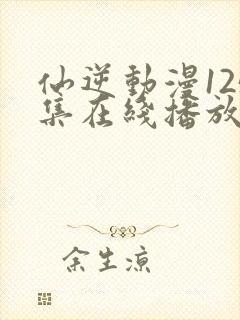 仙逆動漫12
集在綫播放
余生凉